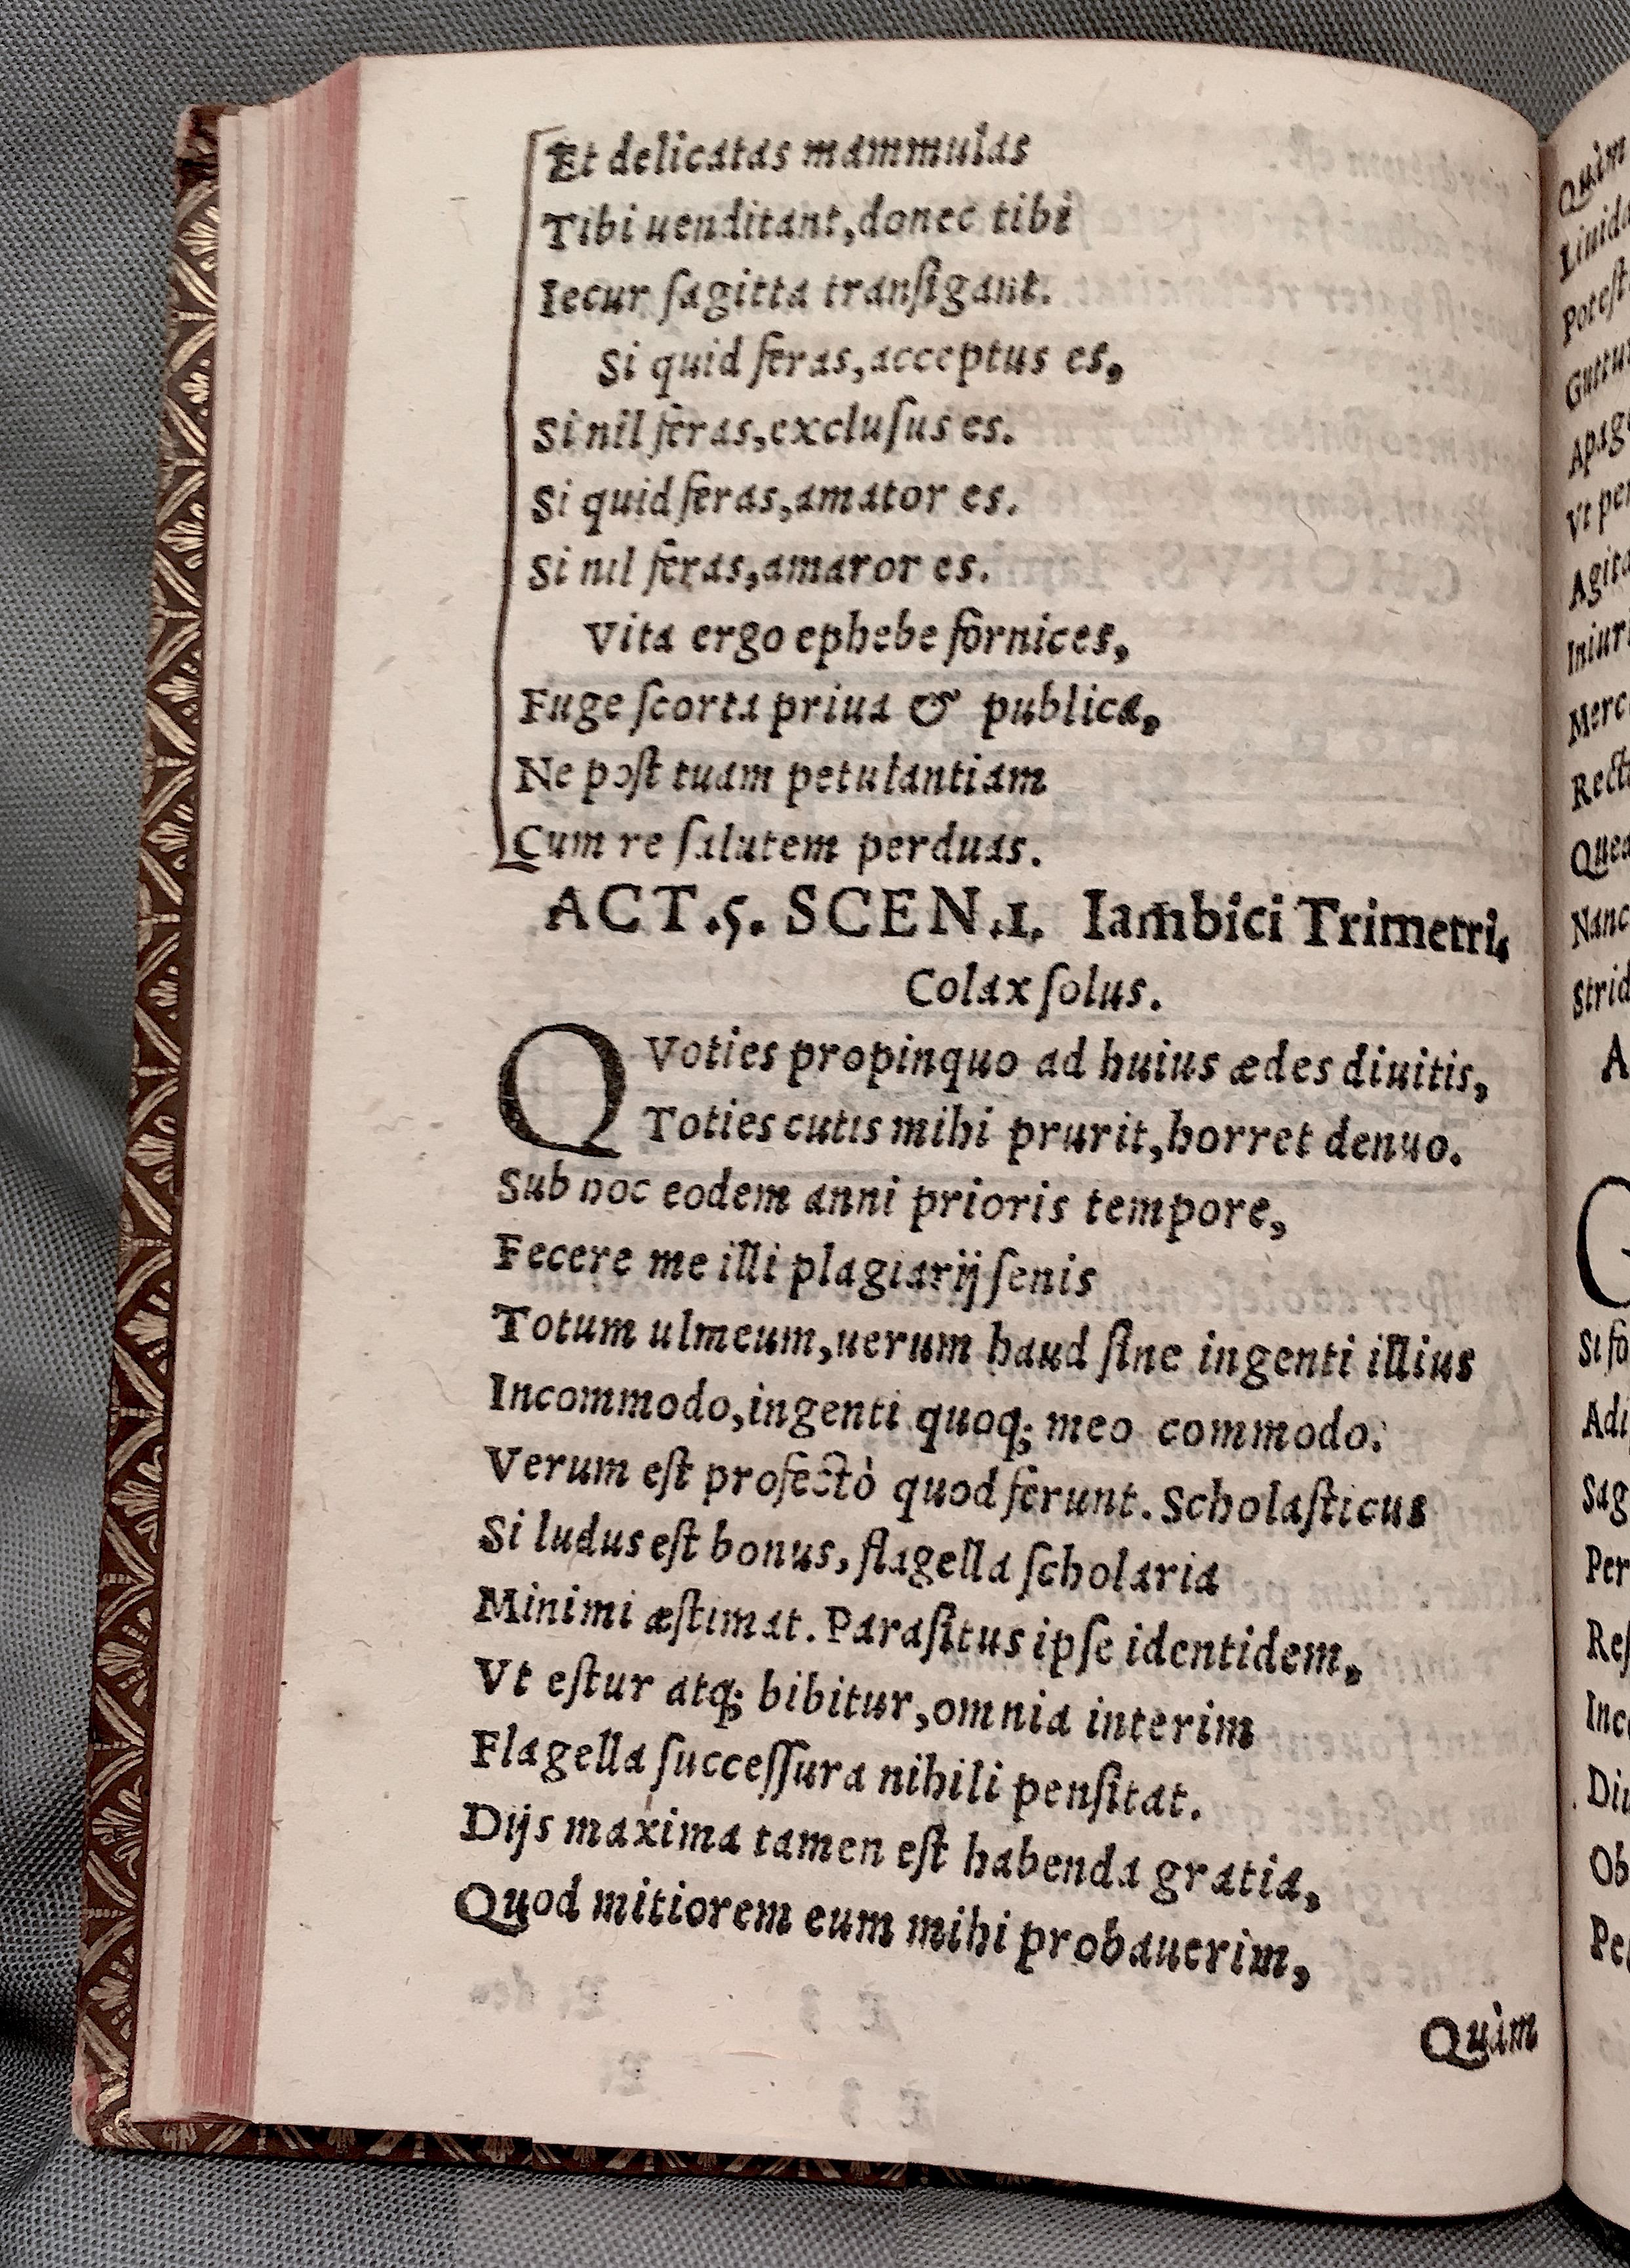 Et delicatas mammulas
Tibi uenditant, donec tibi
Iecur ſagitta tranſigant.
Si quid feras, acceptus es,
Si nil feras, excluſus es.
Si quid feras, amator es.
Si nil feras, amaror es.
Vita ergo ephebe fornices,
Fuge ſcorta priua & publica,
Ne poſt tuam petulantiam
Cum re ſalutem perduas.
ACT.5. SCEN.1. Iambici Trimetri.
Colax ſolus.
QVoties propinquo ad huius ædes diuitis,
Toties cutis mihi prurit, horret denuo.
Sub hoc eodem anni prioris tempore,
Fecere me illi plagiarij ſenis
Totum ulmeum, uerum haud ſine ingenti illius
Incommodo, ingenti quoq; meo commodo.
Verum eſt profectò quod ferunt. Scholaſticus
Si ludus eſt bonus, flagella ſcholaria
Minimi æſtimat. Paraſitus ipſe identidem,
Vt eſtur atq; bibitur, omnia interim
Flagella ſucceſſura nihili penſitat.
Dijs maxima tamen eſt habenda gratia,
Quod mitiorem eum mihi probauerim,
Quàm
Quàm
Liuida
Poteſt
Guttur
Apage
Vt per
Agita
Iniuri
Merc
Recte
Quea
Nanc
Strid
A
G
Si fo
Adi
Sag
Per
Reſ
Inc
Diu
Ob
Pe